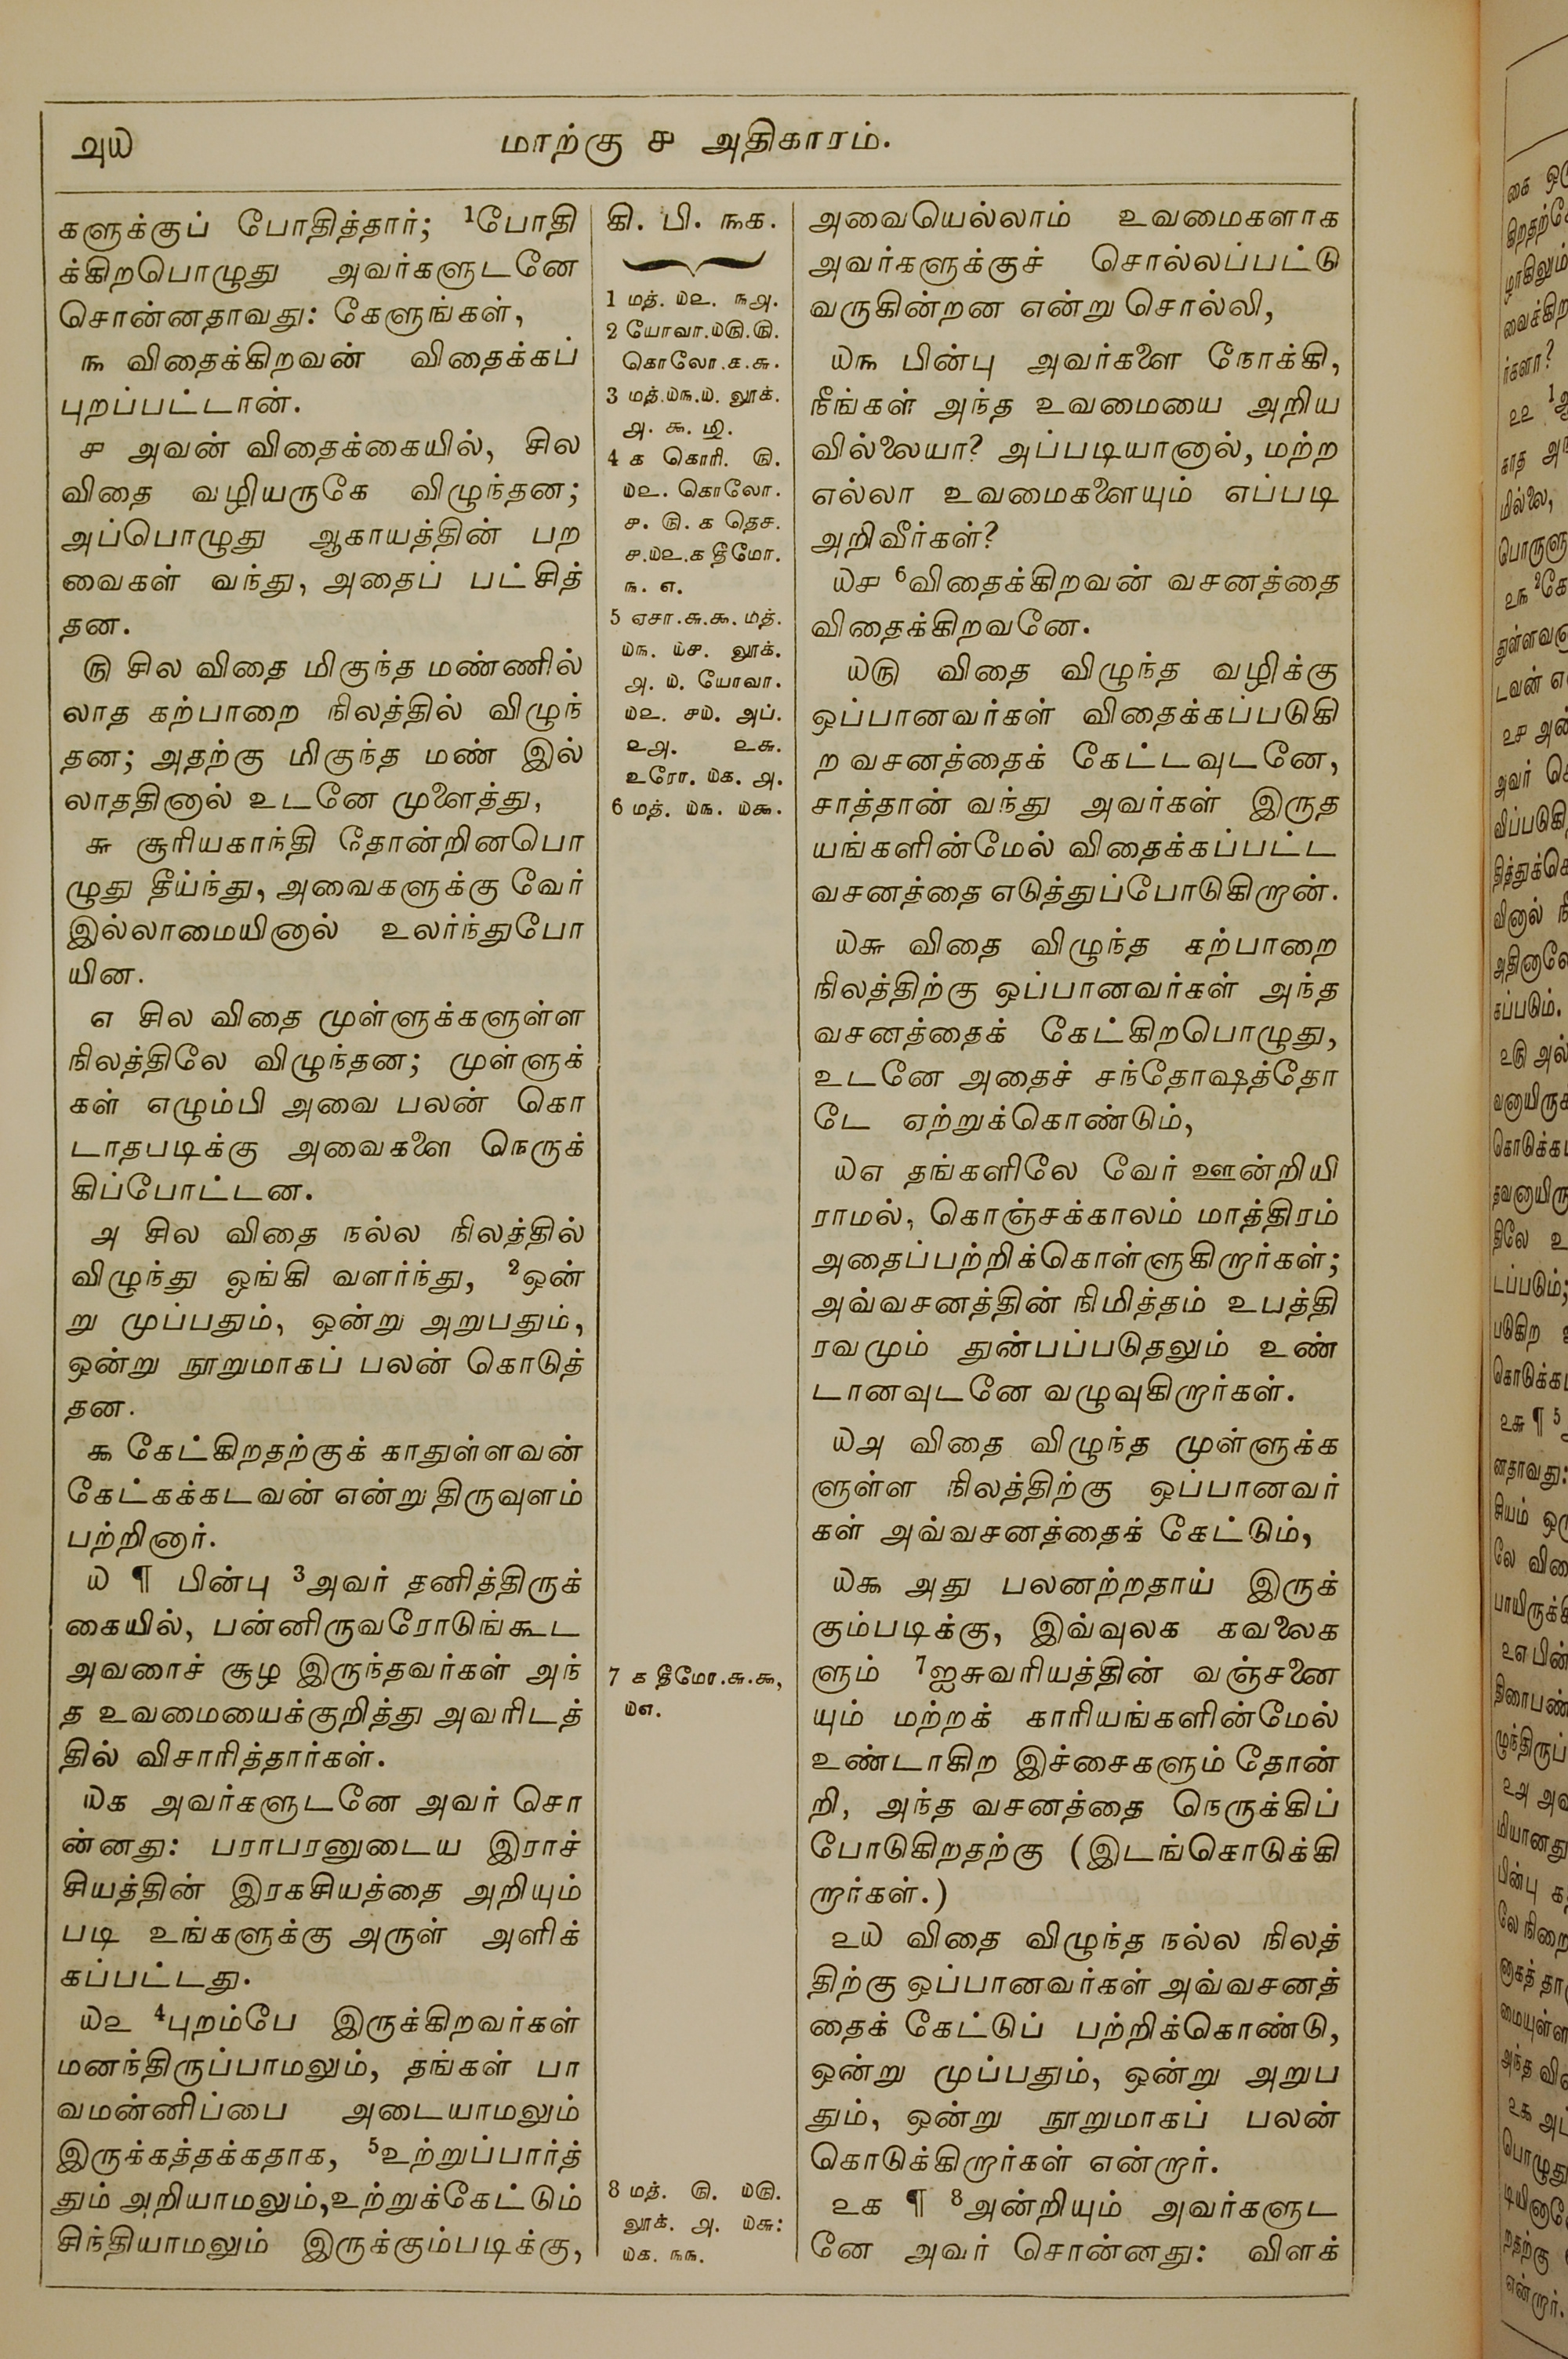 ௮௰
மாற்கு ௪ அதிகாரம்.
களுக்குப் போதித்தார்; ¹போதி
க்கிறபொழுது அவர்களுடனே
சொன்னதாவது: கேளுங்கள்,
௩ விதைக்கிறவன் விதைக்கப்
புறப்பட்டான்.
௪ அவன் விதைக்கையில், சில
விதை வழியருகே விழுந்தன;
அப்பொழுது ஆகாயத்தின் பற
வைகள் வந்து, அதைப் பட்சித்
தன.
௫ சில விதை மிகுந்த மண்ணில்
லாத கற்பாறை நிலத்தில் விழுந்
தன; அதற்கு மிகுந்த மண் இல்
லாததினால் உடனே முளைத்து,
௬ சூரியகாந்தி தோன்றினபொ
ழுது தீய்ந்து, அவைகளுக்கு வேர்
இல்லாமையினால் உலர்ந்துபோ
யின.
௭ சில விதை முள்ளுக்களுள்ள
நிலத்திலே விழுந்தன; முள்ளுக்
கள் எழும்பி அவை பலன் கொ
டாதபடிக்கு அவைகளை நெருக்
கிப்போட்டன.
௮ சில விதை நல்ல நிலத்தில்
விழுந்து ஓங்கி வளர்ந்து, ²ஒன்
று முப்பதும், ஒன்று அறுபதும்,
ஒன்று நூறுமாகப் பலன் கொடுத்
தன.
௯ கேட்கிறதற்குக் காதுள்ளவன்
கேட்கக்கடவன் என்று திருவுளம்
பற்றினார்.
௰ ¶ பின்பு ³அவர் தனித்திருக்
கையில், பன்னிருவரோடுங்கூட
அவரைச் சூழ இருந்தவர்கள் அந்
த உவமையைக்குறித்து அவரிடத்
தில் விசாரித்தார்கள்.
௰௧ அவர்களுடனே அவர் சொ
ன்னது: பராபரனுடைய இராச்
சியத்தின் இரகசியத்தை அறியும்
படி உங்களுக்கு அருள் அளிக்
கப்பட்டது.
௰௨ ⁴புறம்பே இருக்கிறவர்கள்
மனந்திருப்பாமலும், தங்கள் பா
வமன்னிப்பை அடையாமலும்
இருக்கத்தக்கதாக, ⁵உற்றுப்பார்த்
தும் அறியாமலும்,உற்றுக்கேட்டும்
சிந்தியாமலும் இருக்கும்படிக்கு,
கி. பி. ௩௧.
1 மத். ௰௨. ௩௮.
2 யோவா.௰௫.௫.
கொலோ.௧.௬.
3 மத்.௰௩.௰. லூக்.
௮. ௯.
4 ௧ கொரி. ௫.
௰௨. கொலோ.
௪. ௫. ௧ தெச.
௪.௰௨.௧ தீமோ.
௩. ௭.
5 ஏசா.௬.௯. மத்.
௰௩. ௰௪. லூக்.
௮. ௰. யோவா.
௰௨. ௪௰. அப்.
௨௮. ௨௬.
உரோ. ௰௧. ௮.
6 மத். ௰௩. ௰௯.
7 ௧ தீமோ.௬.௯,
௰௭.
8 மத். ௫. ௰௫.
லூக். ௮. ௰௬:
௰௧. ௩௩.
அவையெல்லாம் உவமைகளாக
அவர்களுக்குச் சொல்லப்பட்டு
வருகின்றன என்று சொல்லி,
௰௩ பின்பு அவர்களை நோக்கி,
நீங்கள் அந்த உவமையை அறிய
வில்லையா? அப்படியானால், மற்ற
எல்லா உவமைகளையும் எப்படி
அறிவீர்கள்?
௰௪ ⁶விதைக்கிறவன் வசனத்தை
விதைக்கிறவனே.
௰௫ விதை விழுந்த வழிக்கு
ஒப்பானவர்கள் விதைக்கப்படுகி
ற வசனத்தைக் கேட்டவுடனே,
சாத்தான் வந்து அவர்கள் இருத
யங்களின்மேல் விதைக்கப்பட்ட
வசனத்தை எடுத்துப்போடுகிறான்.
௰௬ விதை விழுந்த கற்பாறை
நிலத்திற்கு ஒப்பானவர்கள் அந்த
வசனத்தைக் கேட்கிறபொழுது,
உடனே அதைச் சந்தோஷத்தோ
டே ஏற்றுக்கொண்டும்,
௰௭ தங்களிலே வேர் ஊன்றியி
ராமல், கொஞ்சக்காலம் மாத்திரம்
அதைப்பற்றிக்கொள்ளுகிறார்கள்;
அவ்வசனத்தின் நிமித்தம் உபத்தி
ரவமும் துன்பப்படுதலும் உண்
டானவுடனே வழுவுகிறார்கள்.
௰௮ விதை விழுந்த முள்ளுக்க
ளுள்ள நிலத்திற்கு ஒப்பானவர்
கள் அவ்வசனத்தைக் கேட்டும்,
௰௯ அது பலனற்றதாய் இருக்
கும்படிக்கு, இவ்வுலக கவலைக
ளும் ⁷ஐசுவரியத்தின் வஞ்சனை
யும் மற்றக் காரியங்களின்மேல்
உண்டாகிற இச்சைகளும் தோன்
றி, அந்த வசனத்தை நெருக்கிப்
போடுகிறதற்கு (இடங்கொடுக்கி
றார்கள்.)
௨௰ விதை விழுந்த நல்ல நிலத்
திற்கு ஒப்பானவர்கள் அவ்வசனத்
தைக் கேட்டுப் பற்றிக்கொண்டு,
ஒன்று முப்பதும், ஒன்று அறுப
தும், ஒன்று நூறுமாகப் பலன்
கொடுக்கிறார்கள் என்றார்.
௨௧ ¶ ⁸அன்றியும் அவர்களுட
னே அவர் சொன்னது: விளக்